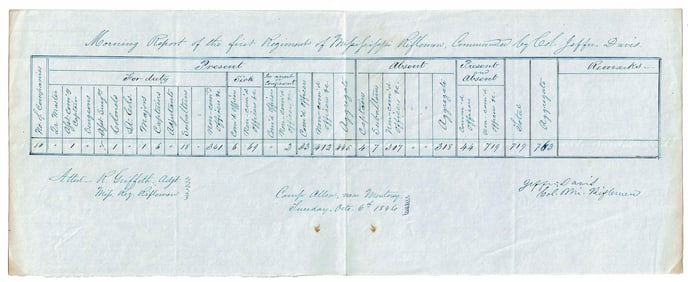 Morning Report of the first Regiment of Mississippi Riflemen, Commanded by Col. Jeffn. Davis.
Present
Absent
Present and Absent
Remarks
For duty
Sick
No. of Companies
Surgeons
Colonels
Lt. Cols
Majors
Captains
Adjutants
Subalterns
Non-com'd officers &c
Com'd officers
Non-com'd officers &c
Com'd officers
Non-com'd officers &c
Aggregate
Captains
Subalterns
Non-com'd officers &c
Aggregate
Com'd officers
Non-com'd officers &c
Total
Aggregate
10 1 1 1 1 1 6 18 341 6 69 2 33 412 445 4 7 307 318 44 719 719 763
Attest R. Griffith, Adjt
Miss. Reg. Riflemen
Camp Allen, near Monterey
Tuesday, Octr. 6th 1846
Jeffn. Davis
Col. Mi. Riflemen